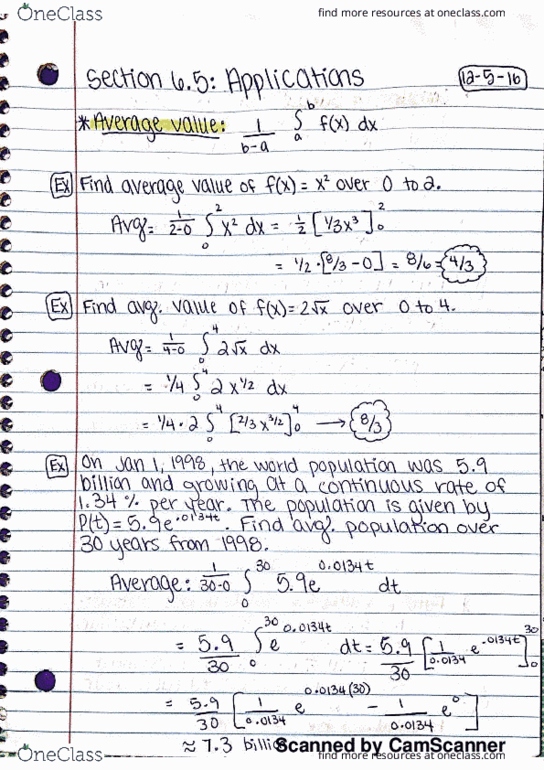 OneClass
find more resources at oneclass.com
Section 6.5: Applications
12-5-16
*Average value: 1/(b-a) ∫_a^b f(x) dx
Ex Find average value of f(x) = x² over 0 to 2.
Avg = 1/(2-0) ∫_0^2 x² dx = 1/2 [1/3x³]_0^2
= 1/2 · [8/3 - 0] = 8/6 = 4/3
Ex Find avg. value of f(x) = 2√x over 0 to 4.
Avg = 1/(4-0) ∫_0^4 2√x dx
= 1/4 ∫_0^4 2x^1/2 dx
= 1/4 · 2 ∫_0^4 [2/3 x^3/2]_0^4 → 8/3
Ex On Jan 1, 1998, the world population was 5.9
billion and growing at a continuous rate of
1.34 % per year. The population is given by
P(t) = 5.9e^.0134t. Find avg. population over
30 years from 1998.
Average: 1/(30-0) ∫_0^30 5.9e^0.0134t dt
= 5.9/30 ∫_0^30 e^0.0134t dt = 5.9/30 [1/0.0134 e^.0134t]_0^30
= 5.9/30 [1/0.0134 e^0.0134(30) - 1/0.0134 e^0]
≈ 7.3 billi
Scanned by CamScanner
OneClass
find more resources at oneclass.com